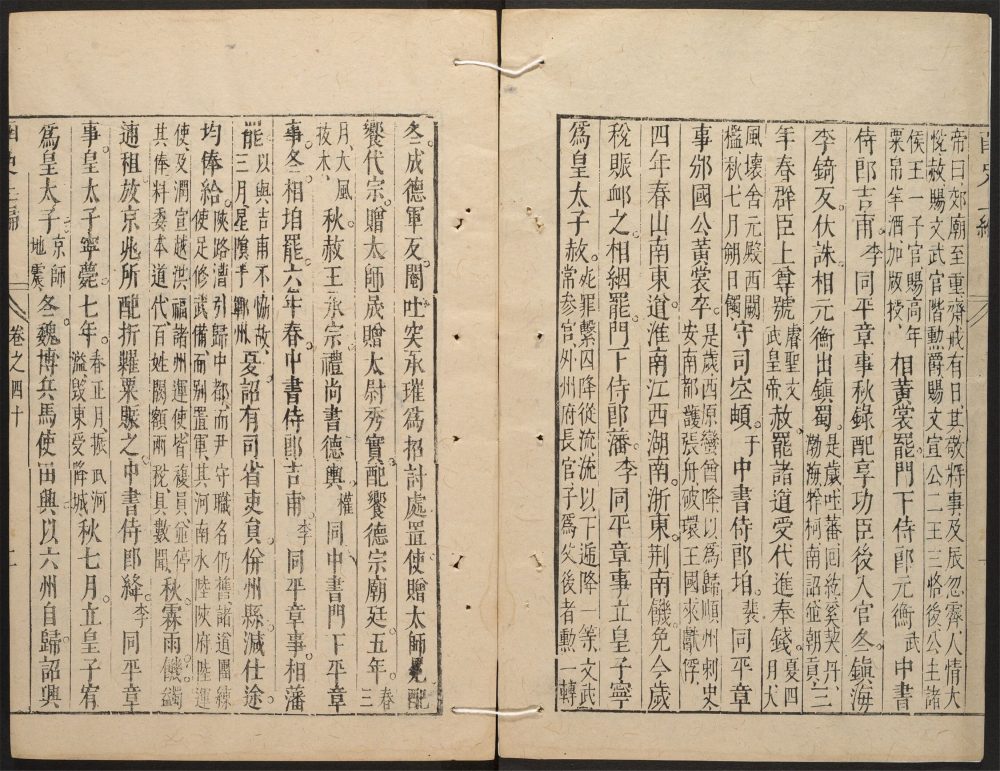 帝曰郊廟至重齋戒有日其敬將事及辰忽霽人情大
悅赦賜文武官階勲爵賜文宣公二王三恪後公主諸
侯王一子官賜高年
粟帛羊酒加版授
相黃裳罷門下侍郎元衡武中書
侍郎吉甫李同平章事秋錄配享功臣後入官冬鎮海
李錡反伏誅相元衡出鎮蜀是歲吐蕃回紇奚契丹
渤海牂柯南詔並朝貢三
年春群臣上尊號睿聖文
武皇帝赦罷諸道受代進奉錢夏四
月大
風壞含元殿西闕
檻秋七月朔日觸守司空頔于中書侍郎垍裴同平章
事邠國公黃裳卒是歲西原蠻酋降以為歸順州刺史
安南都護張舟破環王國來獻俘
四年春山南東道淮南江西湖南浙東荆南饑免今歲
稅賑䘏之相絪罷門下侍郎藩李同平章事立皇子寧
爲皇太子赦死罪繫囚降從流流以下遞降一等文武
常參官外州府長官子爲父後者勲一轉
冬成德軍反閹吐突承璀爲招討處置使贈太師晃配
饗代宗贈太師晟贈太尉秀實配饗德宗廟廷五年春
三
月大風
拔木秋赦王承宗禮尚書德輿權同中書門下平章
事冬相垍罷六年春中書侍郎吉甫李同平章事相藩
罷以與吉甫不恊故
三月星隕于鄆州夏詔有司省吏員併州縣減仕途
均俸給陝路漕引歸中都而尹守職名仍舊諸道團練
使足修武備而别置軍其河南水陸陝府陸運
使及潤宣越洪福諸州運使皆複員並停
其俸料委本道代百姓闕額兩稅具數聞秋霖雨饑蠲
逋租放京兆所配折糴粟賑之中書侍郎絳李同平章
事皇太子寧薨七年春正月振武河
濫毀東受降城秋七月立皇子宥
爲皇太子京師
地震冬魏博兵馬使田興以六州自歸詔興
卷之四十